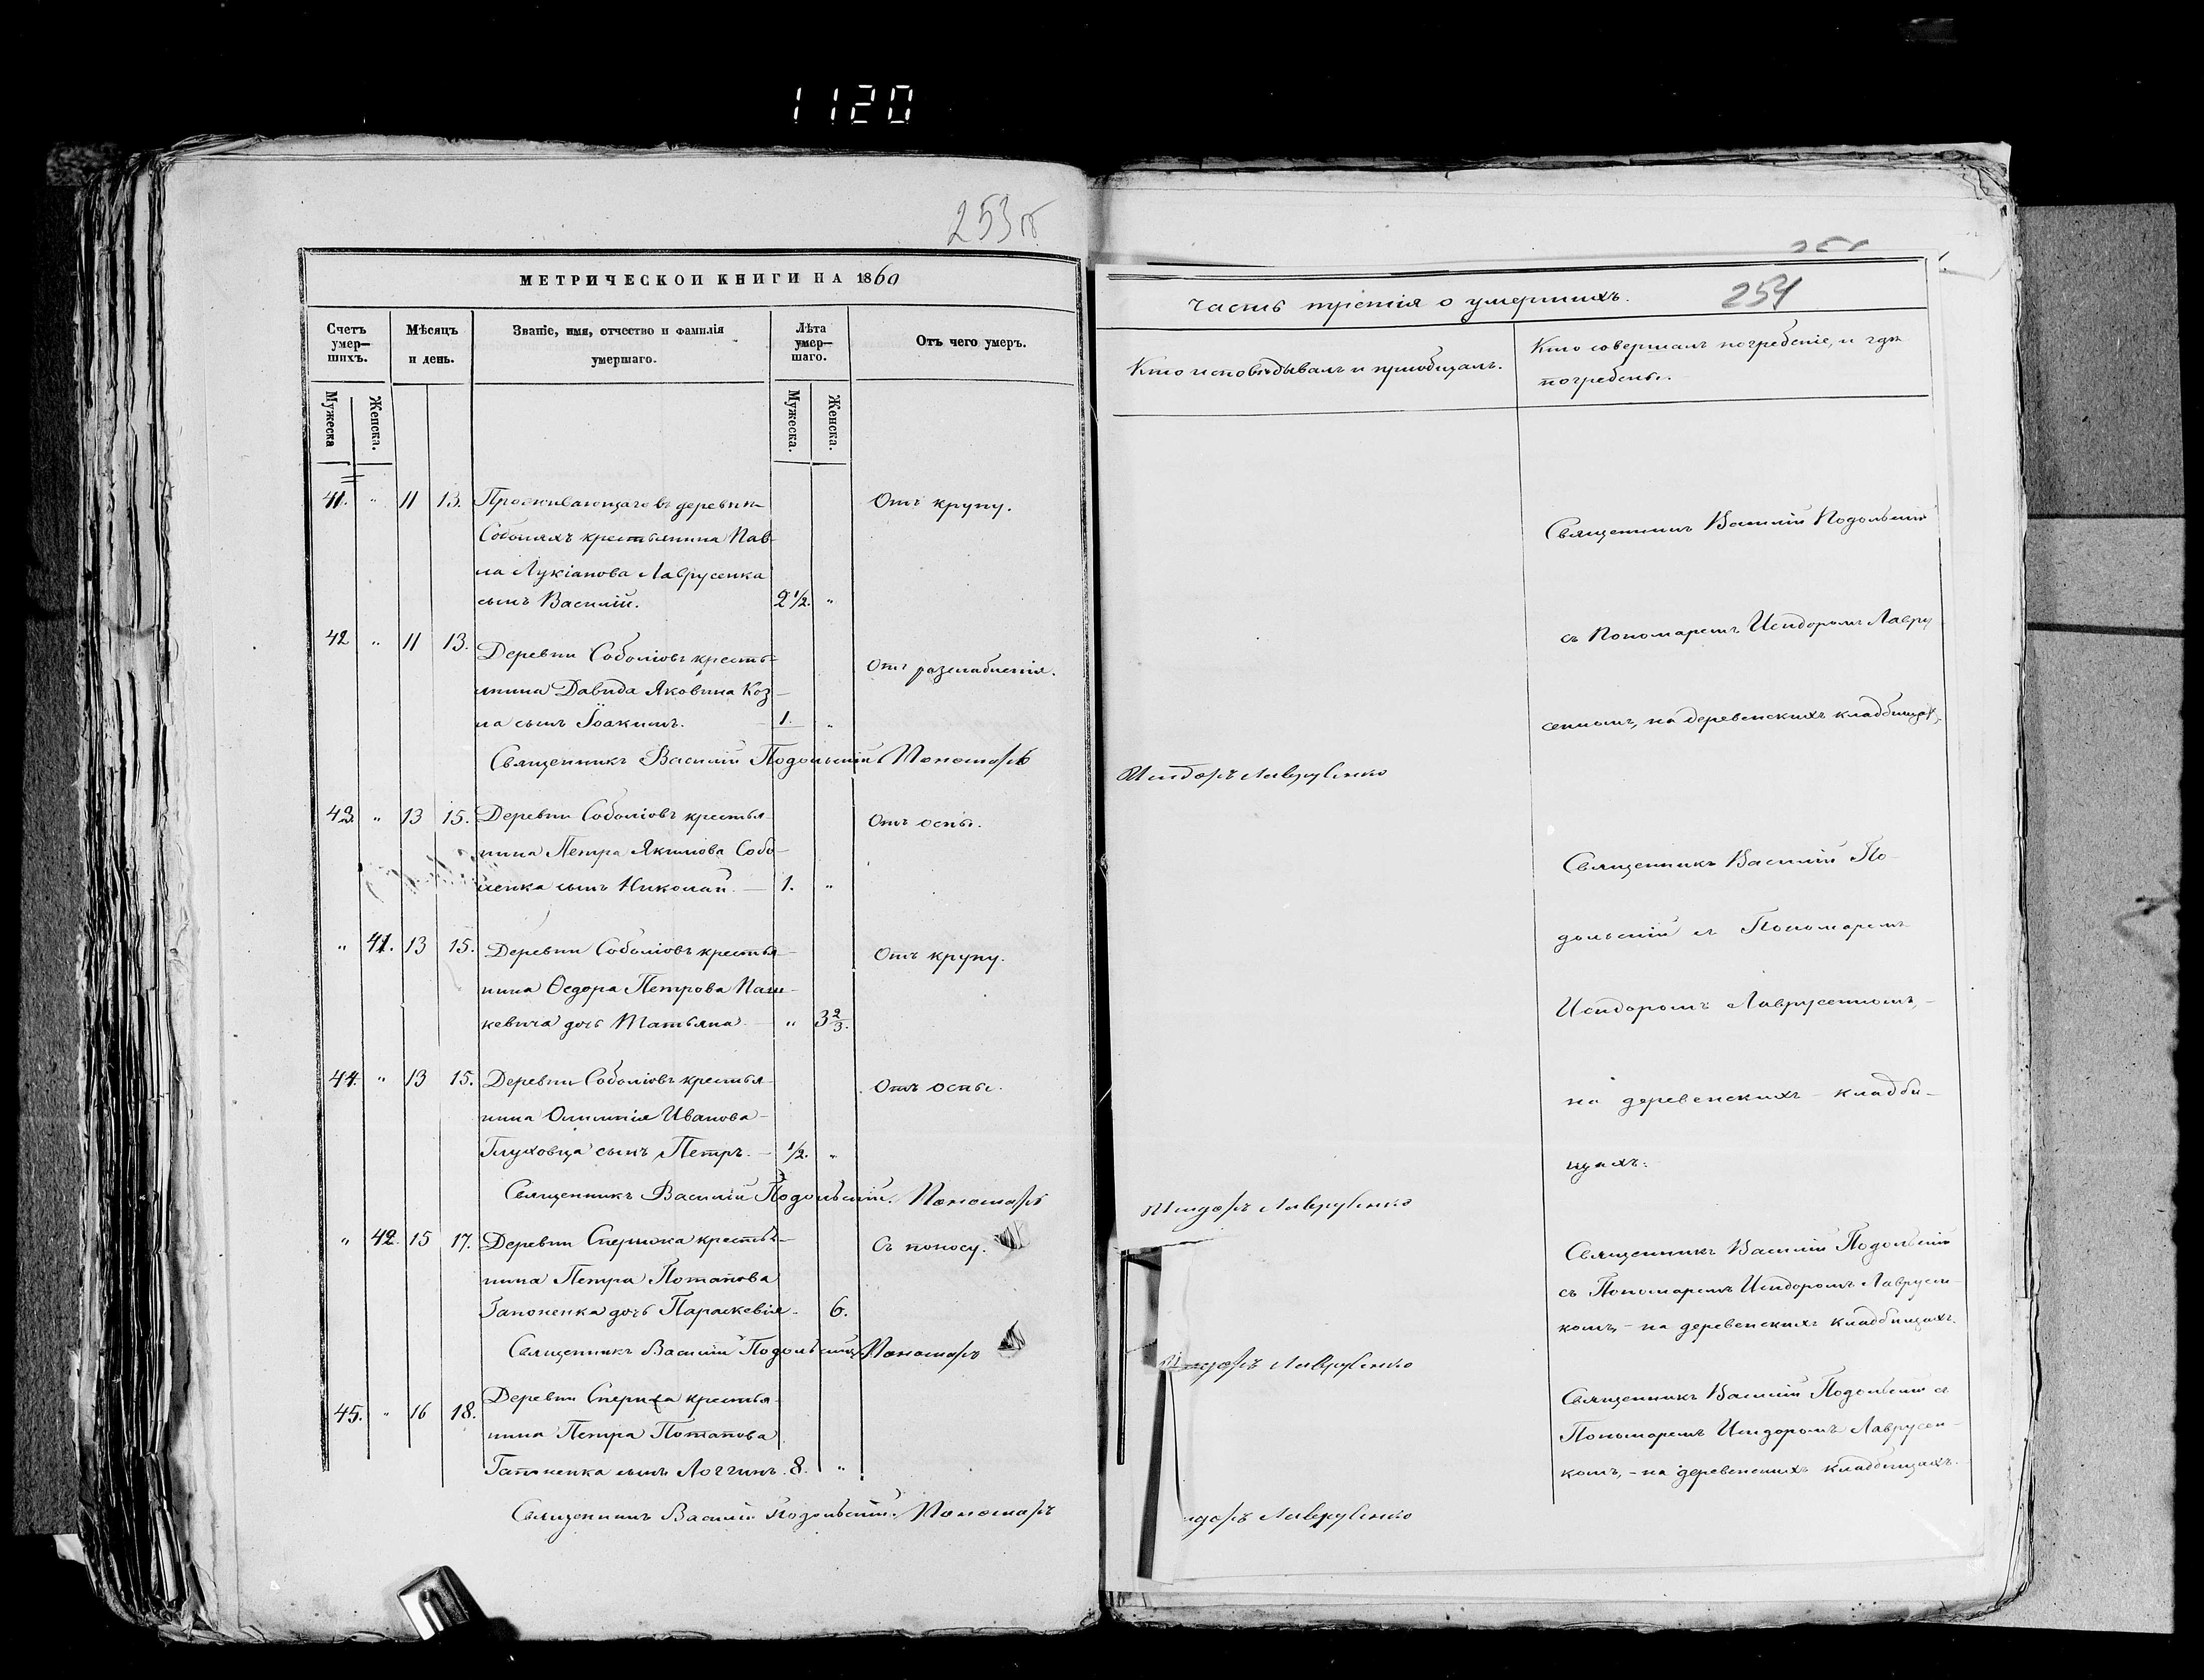 1120
253
МЕТРИЧЕСКОЙ КНИГИ НА 1860
Счетъ умер-шихъ.
Мѣсяцъ и день.
Званіе, имя, отчество и фамилія умершаго.
Лѣта умер-шаго.
Отъ чего умеръ.
Мужеска
Женска.
Мужеска.
Женска.
41. " 11 13. Проживающаго въ деревнѣ Отъ крупу.
Соболяхъ крестьянина Пав-
ла Лукіанова Лаврусенка
сынъ Василій. 2 1/2. "
42 " 11 13. Деревни Соболіовъ кресть- Отъ разслабленія.
янина Давида Яковина Коз-
ла сынъ Іоакимъ. 1. "
Священникъ Василій Подольскій Пономарь
43. " 13 15. Деревни Соболіовъ крестья- Отъ оспы.
нина Петра Якимова Собо-
ленка сынъ Николай. 1. "
" 41. 13 15. Деревни Соболіовъ крестья- Отъ крупу.
нина Ѳедора Петрова Паш-
кевича дочь Татьяна " 3 2/3.
44. " 13 15. Деревни Соболіовъ крестья- Отъ оспы.
нина Олимпія Иванова
Глуховца сынъ Петръ. 1/2. "
Священникъ Василій Подольскій. Пономарь
" 42. 15 17. Деревни кресть- Съ поносу.
нина Петра Потапова
Гапоненка дочь Параскевія. 6.
Священникъ Василій Подольскій Пономарь
45. " 16 18. Деревни крестья-
нина Петра Потапова
Гапоненка сынъ Логгинъ. 8. "
Священникъ Василій Подольскій. Пономарь
254
Часть третія о умершихъ.
Кто исповѣдывалъ и пріобщалъ.
Кто совершалъ погребеніе, и гдѣ
погребены.
Священникъ Василій Подольскій
съ Пономаремъ Исидоромъ Лавру
сенкомъ, на деревенскихъ кладбищах
Исидоръ Лаврусенко
Священникъ Василій По-
дольскій съ Пономаремъ
Исидоромъ Лаврусенкомъ,-
на деревенскихъ кладби-
щахъ.
Исидоръ Лаврусенко
Священникъ Василій Подольскій
съ Пономаремъ Исидоромъ Лаврусен-
комъ,- на деревенскихъ кладбищахъ.
Исидоръ Лаврусенко
Священникъ Василій Подольскій съ
Пономаремъ Исидоромъ Лаврусен-
комъ,- на деревенскихъ кладбищахъ.
идоръ Лаврусенко